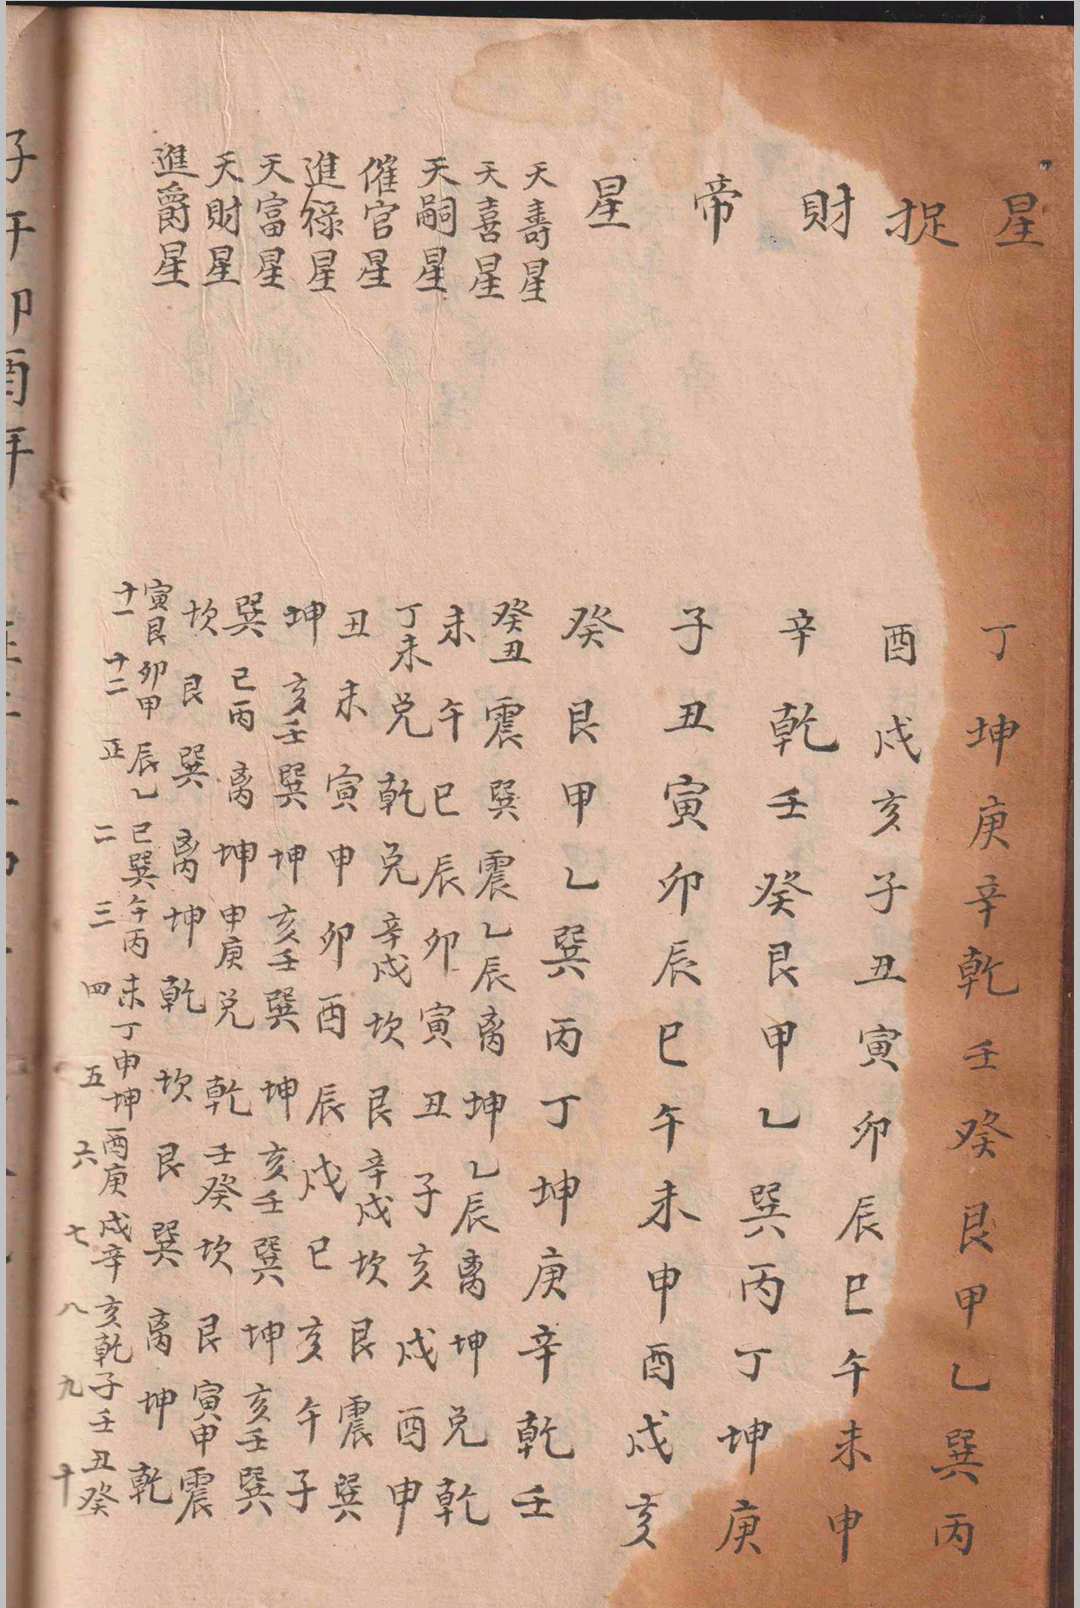 星 丁坤庚辛乾壬癸艮甲乙巽丙
捉 酉戌亥子丑寅卯辰巳午未申
財 辛乾壬癸艮甲乙巽丙丁坤庚
帝 子丑寅卯辰巳午未申酉戌亥
星 癸艮甲乙巽丙丁坤庚辛乾壬
天壽星 癸丑 震 巽 震 乙辰 离 坤 乙辰 离 坤 兑 乾
天喜星 未午巳辰卯寅丑子亥戌酉申
天嗣星 丁未 兑 乾 兑 辛戌 坎 艮 辛戌 坎 艮 震 巽
催官星 丑未寅申卯酉辰戌巳亥午子
進祿星 坤 亥壬 巽 坤 亥壬 巽 坤 亥壬 巽 坤 亥壬 巽
天富星 巽 巳丙 离 坤 申庚 兑 乾 壬癸 坎 艮 寅甲 震
天財星 坎艮巽离坤乾坎艮巽离坤乾
進爵星 寅艮 卯甲 辰乙 巳巽 午丙 未丁 申坤 酉庚 戌辛 亥乾 子壬 丑癸
十一 十二 正 二 三 四 五 六 七 八 九 十
子午卯酉年